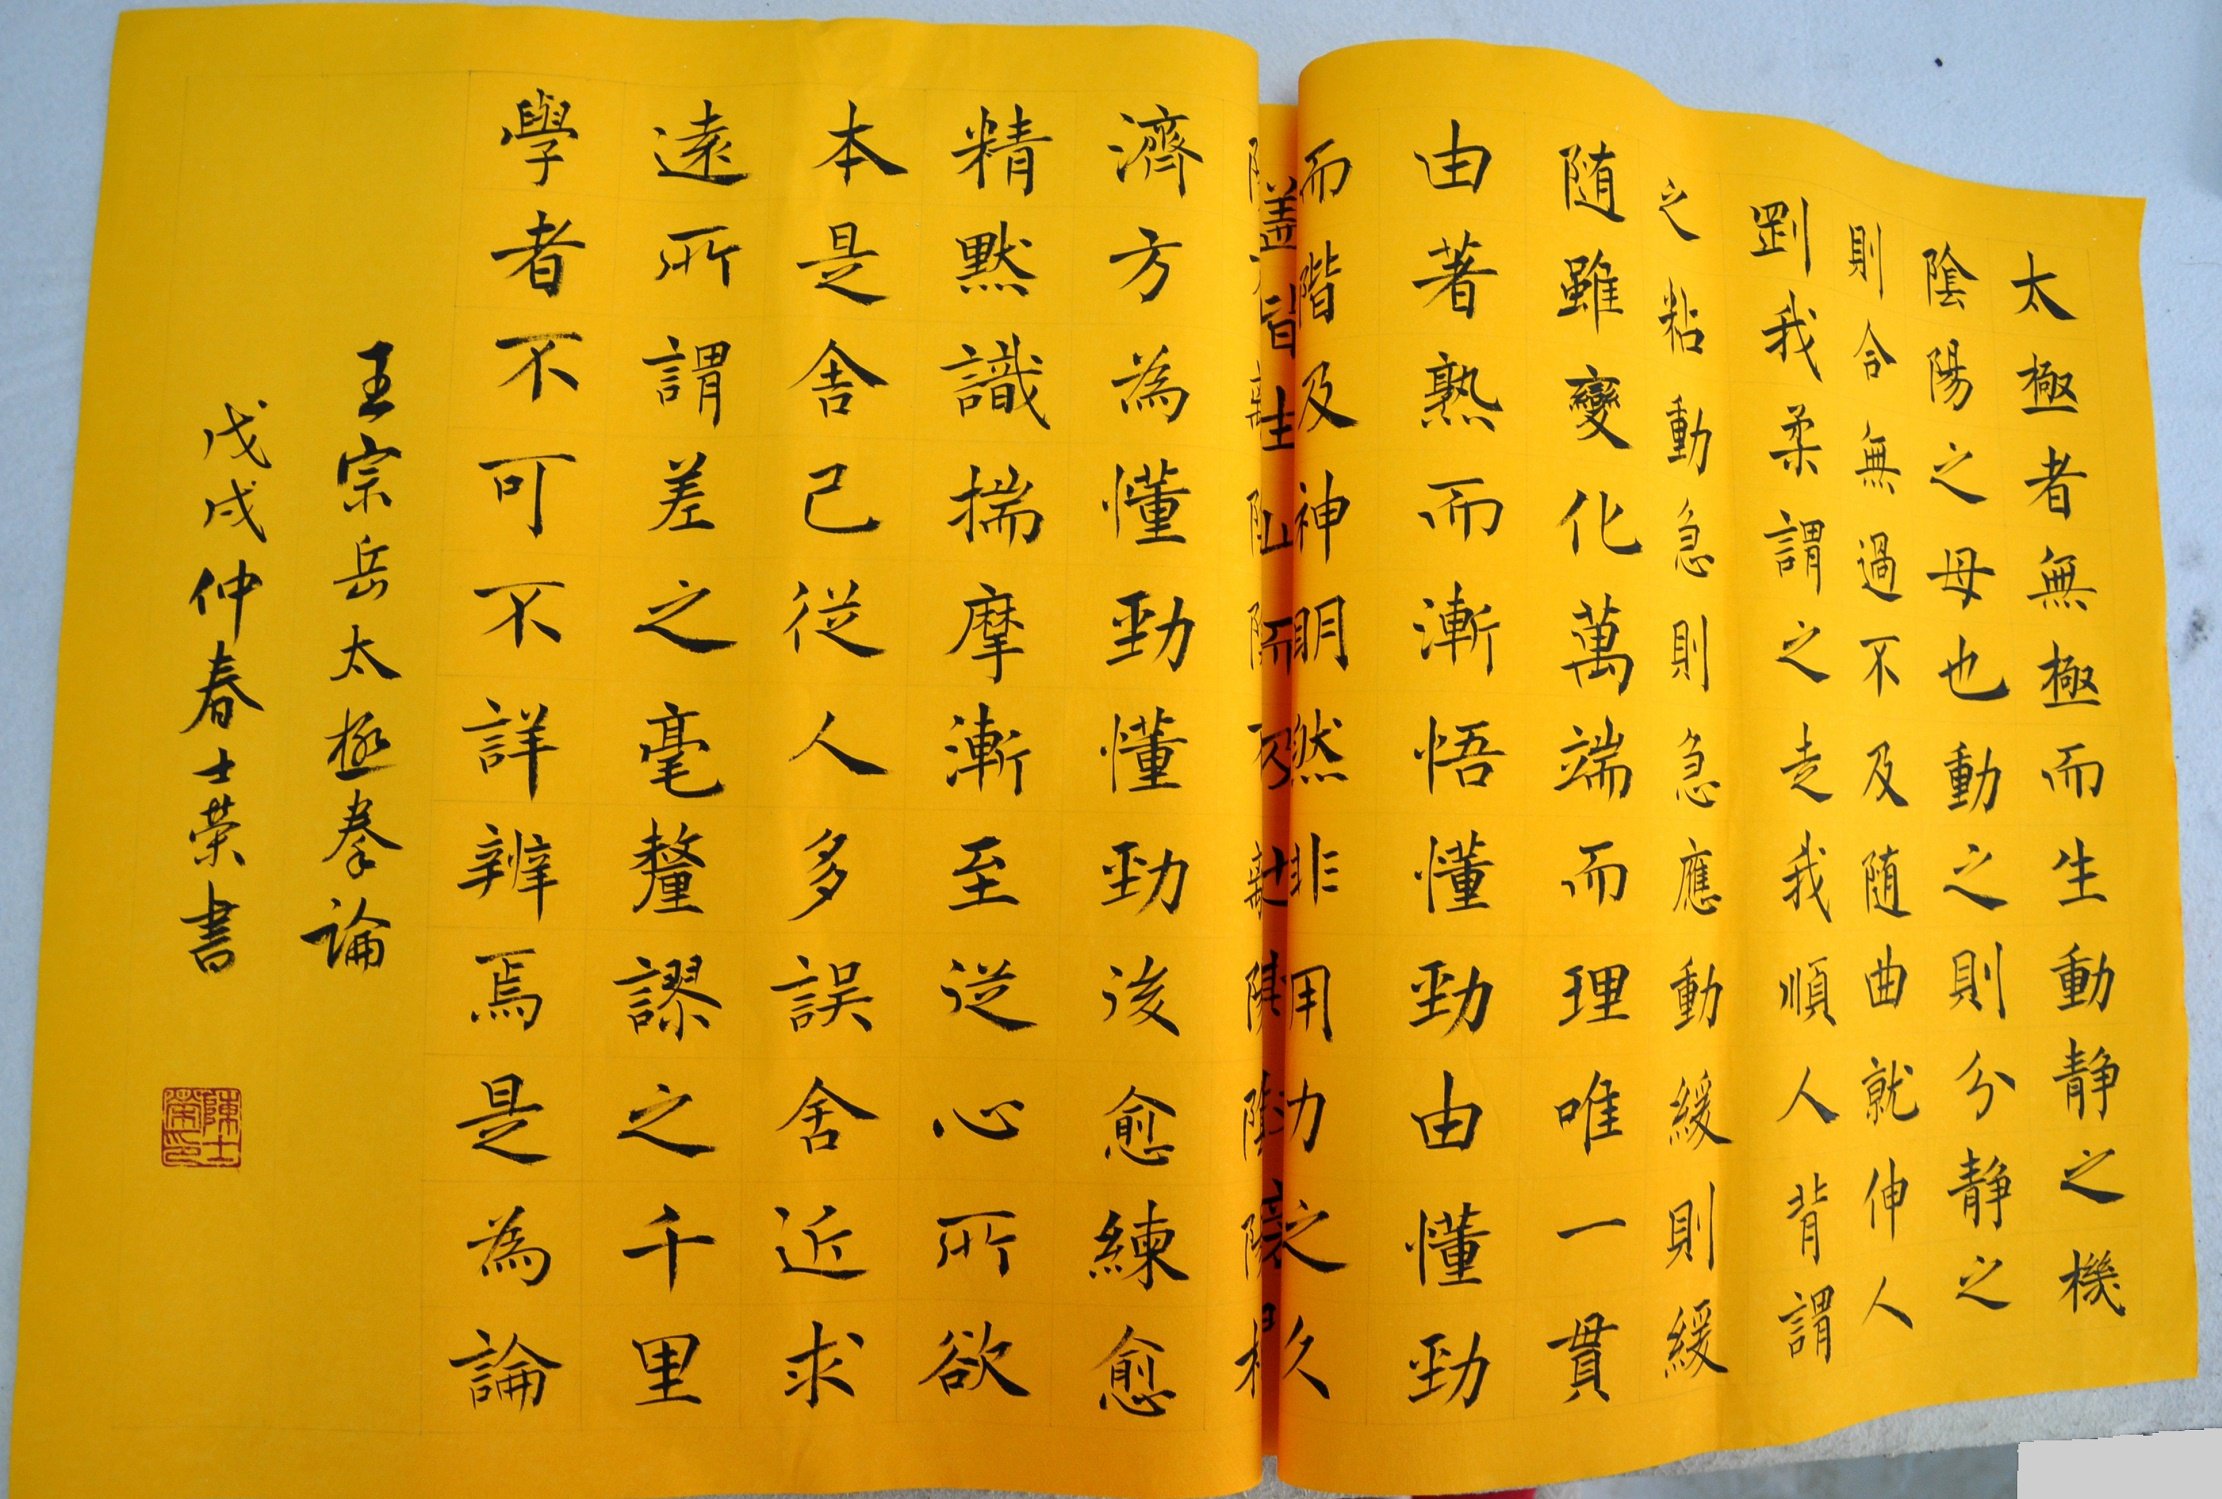 太極者無極而生動静之機
陰陽之母也動之則分静之
則合無過不及随曲就伸人
剛我柔謂之走我順人背謂
之粘動急則急應動緩則緩
随雖變化萬端而理唯一貫
由著熟而漸悟懂勁由懂勁
而階及神明然非用力之久
濟方為懂勁懂勁後愈練愈
精默識揣摩漸至從心所欲
本是舍己從人多誤舍近求
遠所謂差之毫釐謬之千里
學者不可不詳辨焉是為論
王宗岳太極拳論
戊戌仲春士榮書
陳士榮印